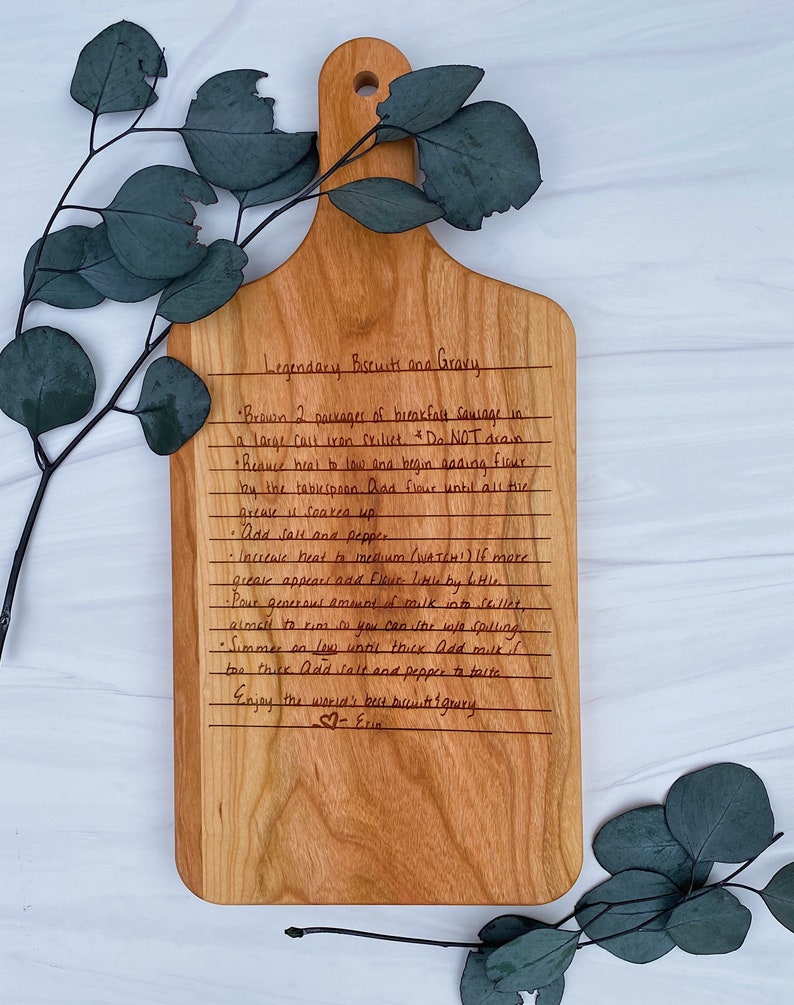 Legendary Biscuits and Gravy
• Brown 2 packages of breakfast sausage in
a large cast iron skillet. *Do NOT drain
• Reduce heat to low and begin adding flour
by the tablespoon. Add flour until all the
grease is soaked up.
• Add salt and pepper
• Increase heat to medium (WATCH!) If more
grease appears add flour- little by little.
• Pour generous amount of milk into skillet,
almost to rim so you can stir w/o spilling
• Simmer on low until thick. Add milk if
too thick. Add salt and pepper to taste
Enjoy the world's best biscuits & gravy
-♡- Erin